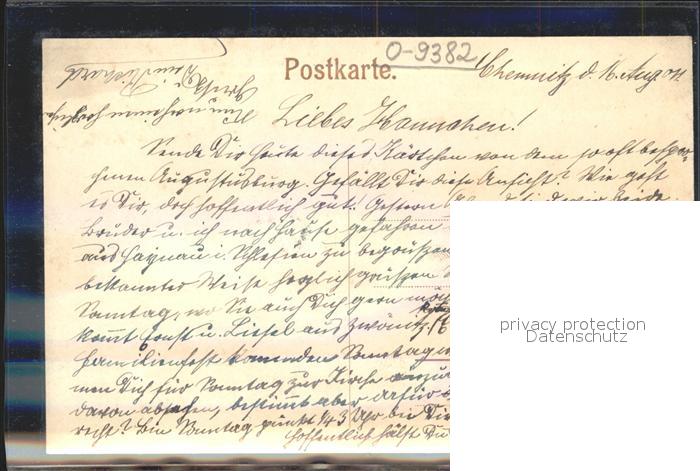 O-9382
Postkarte.
Chemnitz d. 16. Aug. 04.
Liebes Hannchen!
Sende Dir heute dieses Kärtchen von dem so oft bespro-
chenen Augustusburg. Gefällt Dir diese Ansicht? Wie geht
es Dir, doch hoffentlich gut! Gestern
Brüder u. ich nach Hause gefahren
aus Haynau i. Schlesien zu begrüssen
bekannter Weise herzlich grüssen
Sonntag, wo Sie auch Dich gern
kommt Ernst u. Liesel aus Zwönitz
Familienfest kommenden Sonntag
men Dich für Sonntag zur Kirche
davon absehen, bestimmt aber dafür
recht? Bin Sonntag punkt 1/4 3 Uhr bei Dir
hoffentlich hältst Du
privacy protection
Datenschutz